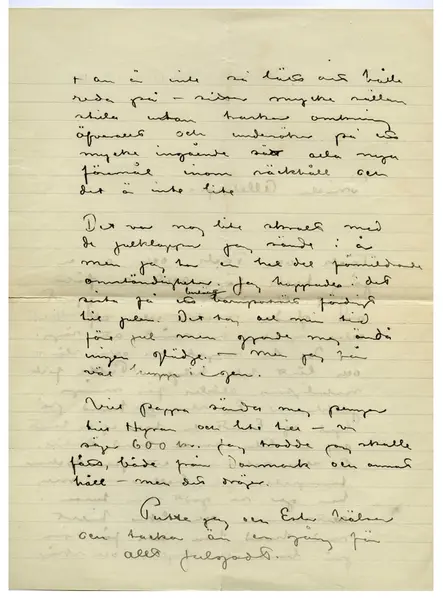 + an är inte så lätt att hålla
reda på – sitter mycket sällan
stilla utan traskar omkring
öfverallt och undersöker på ett
mycket ingående sätt alla nya
föremål inom räckhåll och
det är inte lite
Det var nog lite skralt med
de julklappar jag sände i år
men jag har en hel del förmildrande
omständigheter. Jag hoppades i det
sista få ett färdigt
till julen. Det tog all min tid
före jul men gjorde mig ändå
ingen glädje. – men jag får
väl i igen.
Vill Pappa sända mig pengar
till Hyran och lite till – vi
säger 600 kr. Jag trodde jag skulle
fått, både från Danmark och annat
håll – men det dröjer.
Putte jag och Ester hälsar
och tackar än en gång för
allt julgodt.